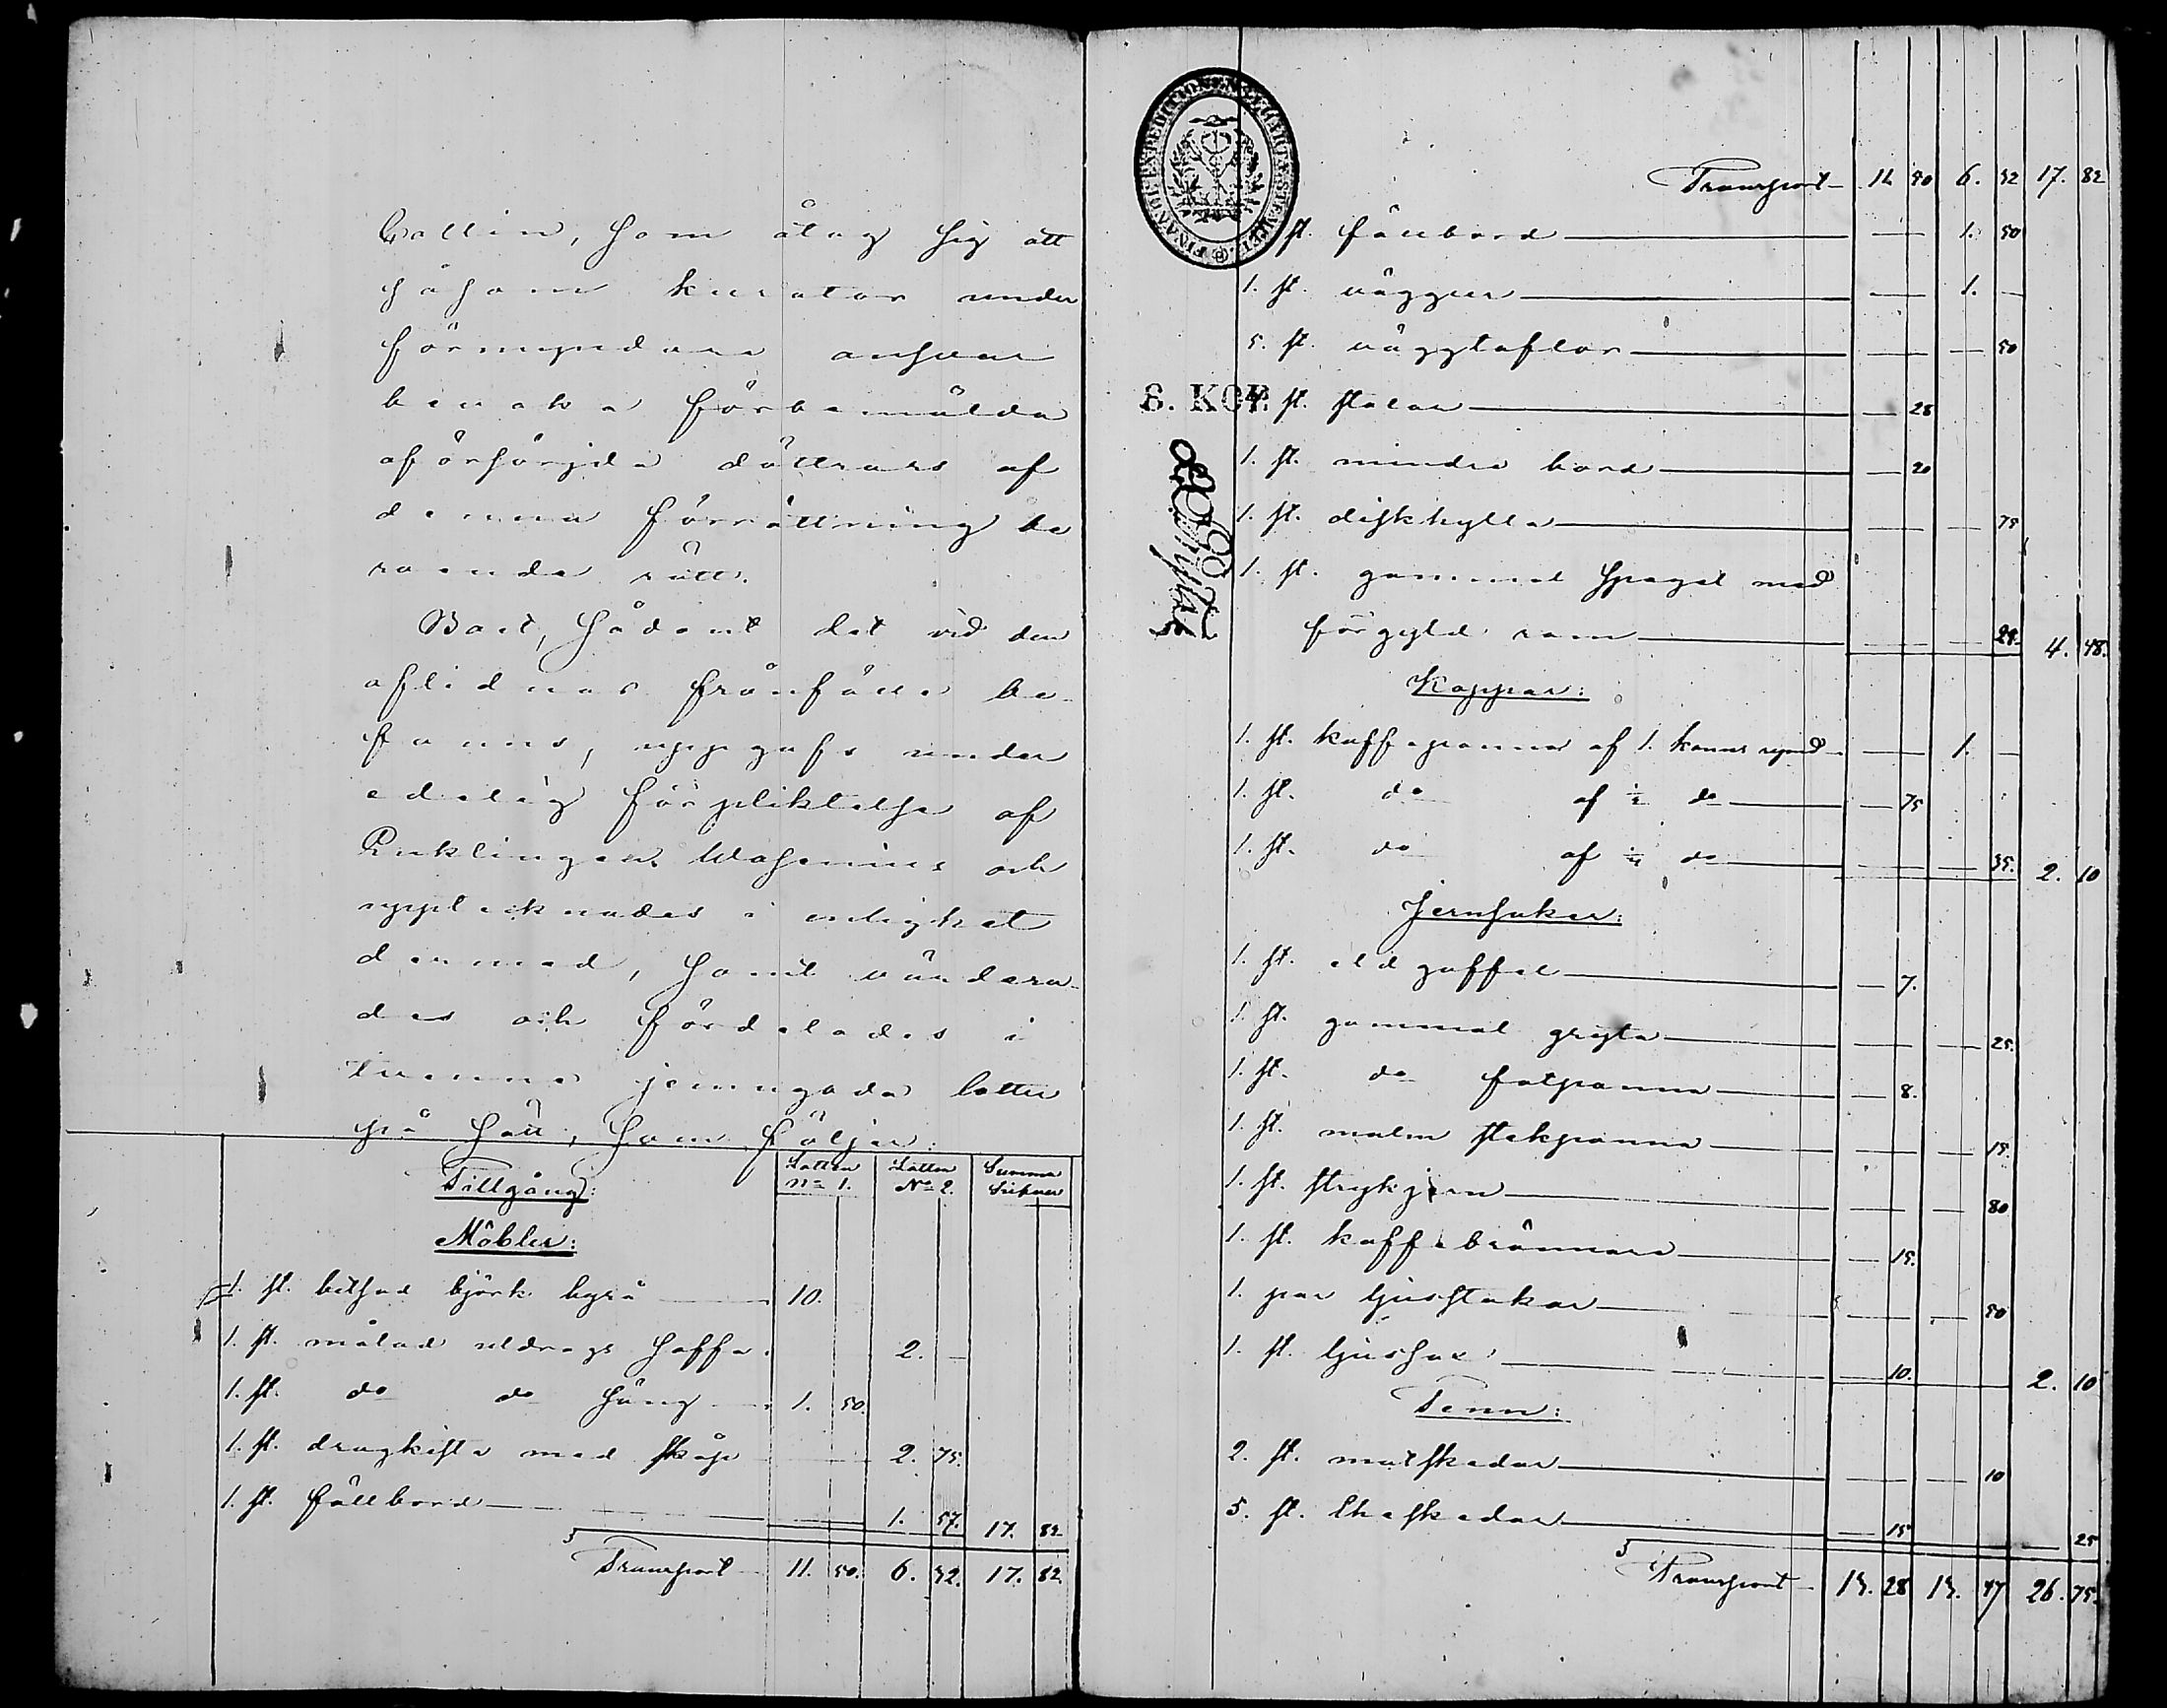 Wallin, som åtog sig att
såsom kurator under
förmyndare ansvar
bevaka förbemälda
oförsörjda dottrars af
denna förrättning be
roende rätt.
Boet, sådant det vid den
aflidnas frånfälle be-
fanns, uppgafs under
edelig förpliktelse af
Enklingen Wasenius och
upptecknades i enlighet
dermed, samt värdera-
des och fördelades i
tvenne jemngoda lotter
på sätt, som följer:
Tillgång: Lotten No 1. Lotten No 2. Summa Silfver
Möbler:
1. st. betsad björk byrå 10.
1. st. målad utdrags soffa 2. —
1. st. do do säng 1. 50.
1. st. dragkista med skåp 2. 75.
1. st. fällbord 1. 57. 17. 82
Transport 11. 50. 6. 32. 17. 82.
FINANCE EXPEDITIONS CHARTÆ STEMPEL
8. KOP.
Transport 11 50 6. 32 17. 82
st. fällbord 1. 50
1. st. väggur 1. —
5. st. väggtaflor 50
st. stolar 28
1. st. mindre bord 20
1. st. diskhylla 75
1. st. gammal spegel med
förgyld ram 4. 48.
Koppar:
1. st. kaffepanna af 1. kannas rymd 1. —
1. st. do af ½ do 75
1. st. do af ¼ do 35. 2. 10
Jernsaker:
1. st. eldgaffel 7.
1. st. gammal gryta 25.
1. st. do fotpanna 8.
1. st. malm stekpanna 15.
1. st. strykjern 80
1. st. kaffebrännare 15.
1. par ljusstakar 50
1. st. ljussax 10. 2. 10
Tenn:
2. st. matskedar 10
5. st. theskedar 15 25
Transport 13. 28 13. 47 26. 75.